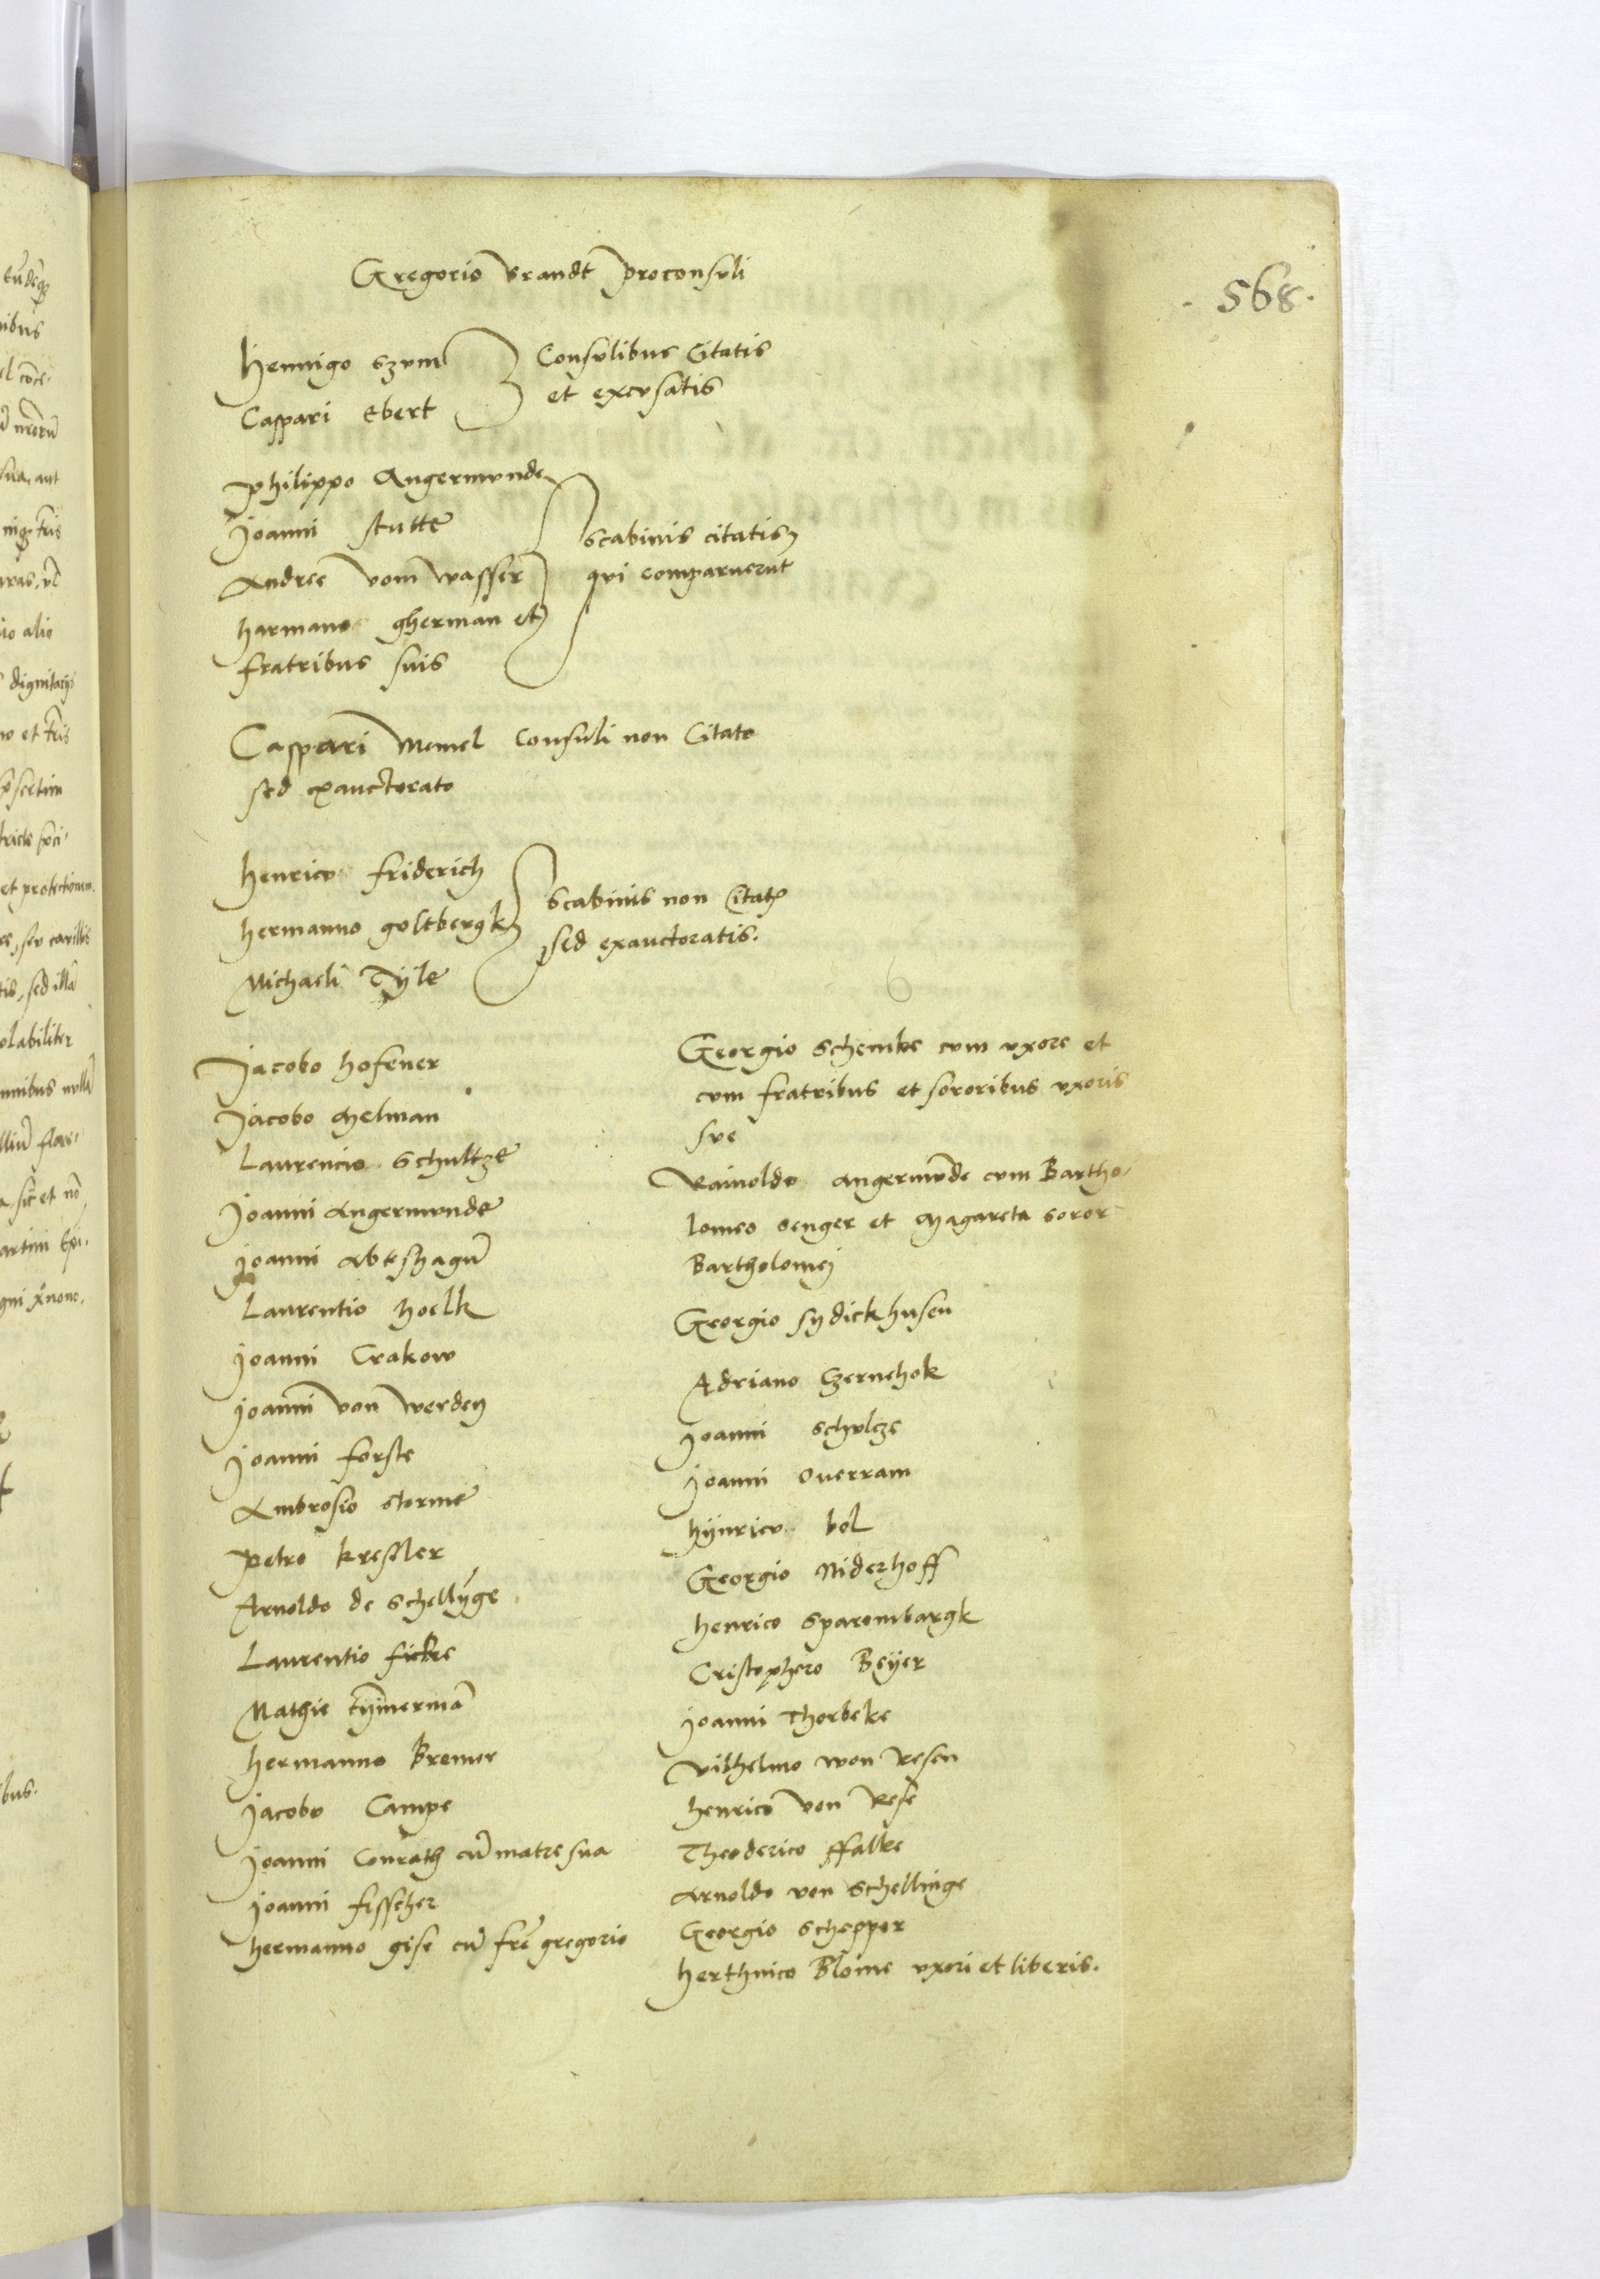 568.
Gregorio brandt proconsuli
Hennigo szum
Caspari Ebert
Consulibus Citatis
et excusatis
Philippo Angermunde
Joanni stutte
Andree vom wasser
harmano gherman et
fratribus suis
scabinis citatis
qui comparuerunt
Caspari Memel Consuli non Citato
sed exauctorato
henrico friderich
hermanno goltbergk
Michaeli Tyle
scabinis non Citatis
sed exauctoratis.
Jacobo hofener
Jacobo Melman
Laurencio Schultze
Joanni Angermunde
Joanni Abteshagen
Laurentio hoelk
Joanni Crakow
Joanni von werden
Joanni forste
Ambrosio storme
Petro kressler
Arnoldo de Schellynge
Laurentio ficke
Mathie tymmerman
hermanno Bremer
Jacobo Campe
Joanni Conrath cum matre sua
Joanni fisscher
hermanno gise cum fratre gregorio
Georgio Schemke cum uxore et
cum fratribus et sororibus uxoris
sue
Rainoldo angermunde cum Bartho
lomeo senger et Magareta soror
Bartholomei
Georgio sydickhusen
Adriano Czernehok
Joanni schulcze
Joanni overram
hynrico bol
Georgio Niderhoff
henrico sparombargk
Cristophero Beyer
Joanni Thorbeke
vilhelmo won Resen
henrico von Rese
Theoderico ffalke
Arnoldo von schellinge
Georgio schepper
herthnico Blome uxori et liberis.